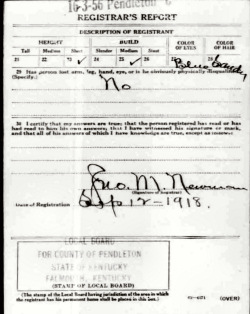 16-3-56 Pendleton C
REGISTRAR'S REPORT
DESCRIPTION OF REGISTRANT
HEIGHT BUILD COLOR OF EYES COLOR OF HAIR
Tall Medium Short Slender Medium Stout
21 22 23 ✓ 24 25 ✓ 26 27 Blue 28
29 Has person lost arm, leg, hand, eye, or is he obviously physically disqualified?
(Specify.)
No
30 I certify that my answers are true; that the person registered has read or has
had read to him his own answers; that I have witnessed his signature or mark,
and that all of his answers of which I have knowledge are true, except as follows:
Jno. M. Newman
(Signature of Registrar)
Date of Registration Sep 12-1918.
LOCAL BOARD
FOR COUNTY OF PENDLETON
STATE OF KENTUCKY
FALMOUTH, KENTUCKY
(STAMP OF LOCAL BOARD)
(The stamp of the Local Board having jurisdiction of the area in which
the registrant has his permanent home shall be placed in this box.)
(OVER)